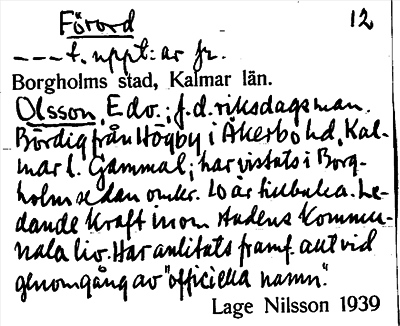 Förord 12
--- t. uppt:ar fr.
Borgholms stad, Kalmar län.
Olsson, Edv.; f.d. riksdagsman.
Bördig från Högby i Åkerbo hd, Kal-
mar l. Gammal; har vistats i Borg-
holm sedan omkr. 20 år tillbaka. Le-
dande kraft inom stadens kommu-
nala liv. Har anlitats framf. allt vid
genomgång av "officiella namn."
Lage Nilsson 1939